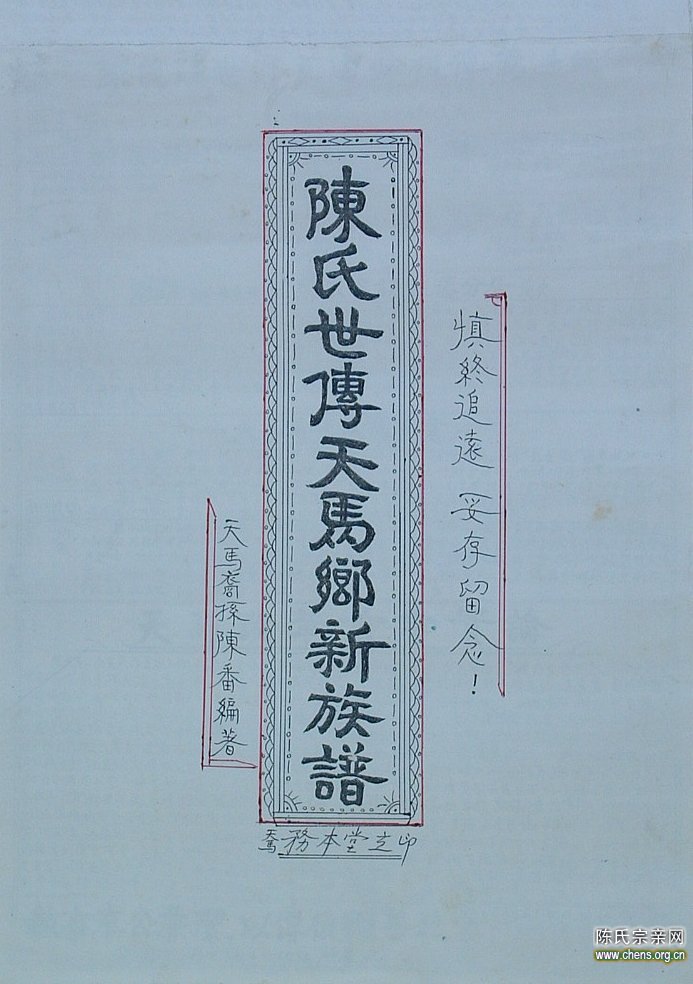 慎終追遠 妥存留念！
陳氏世傳天馬鄉新族譜
天馬裔孫陳番編著
天馬務本堂立印
陈氏宗亲网
www.chens.org.cn